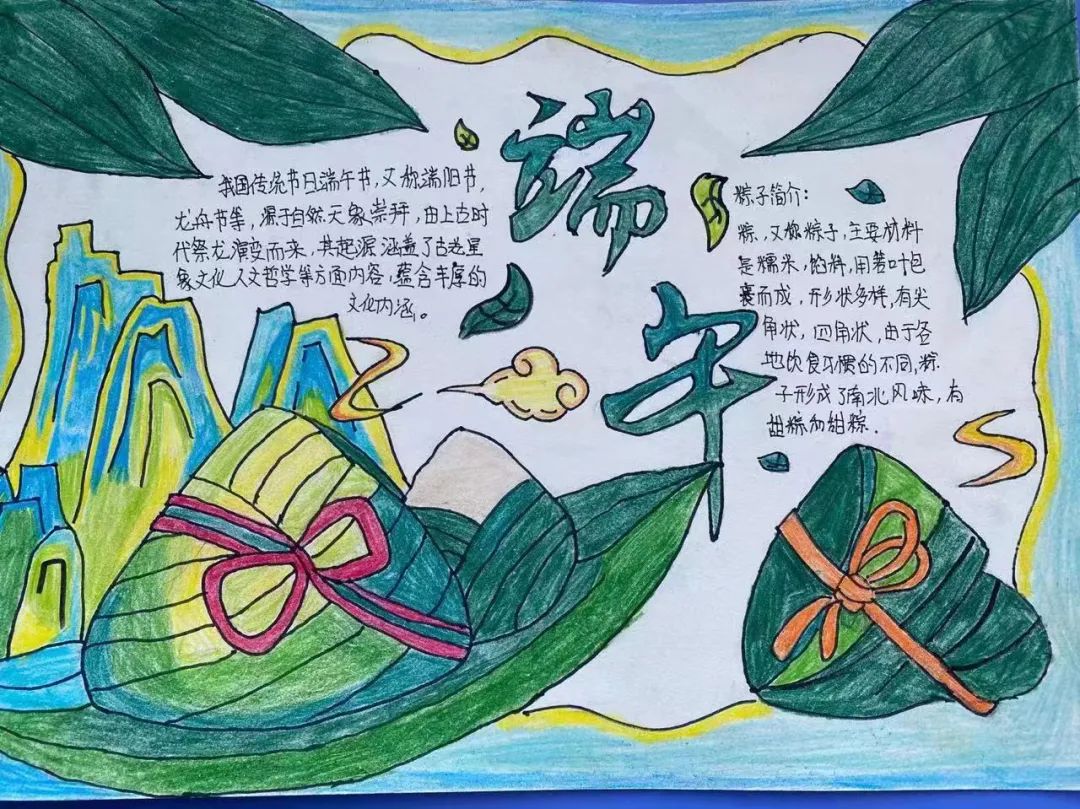 端午
我国传统节日端午节，又称端阳节，
龙舟节等，源于自然天象崇拜，由上古时
代祭龙演变而来，其起源涵盖了古老星
象文化人文哲学等方面内容，蕴含丰厚的
文化内涵。
粽子简介：
粽，又称粽子，主要材料
是糯米，馅料，用箬叶包
裹而成，形状多样，有尖
角状，四角状，由于各
地饮食习惯的不同，粽
子形成了南北风味，有
粽和甜粽．